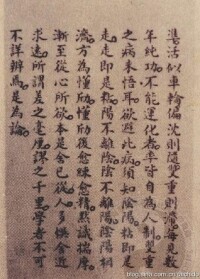 準活似車輪偏沉則隨雙重則滯每見數
年純功不能運化者率皆自為人制雙重
之病未悟耳欲避此病須知陰陽粘即是
走走即是粘陽不離陰陰不離陽陰陽相
濟方為懂勁懂勁後愈練愈精默識揣摩
漸至從心所欲本是舍己從人多悞舍近
求遠所謂差之毫釐謬之千里學者不可
不詳辨焉是為論